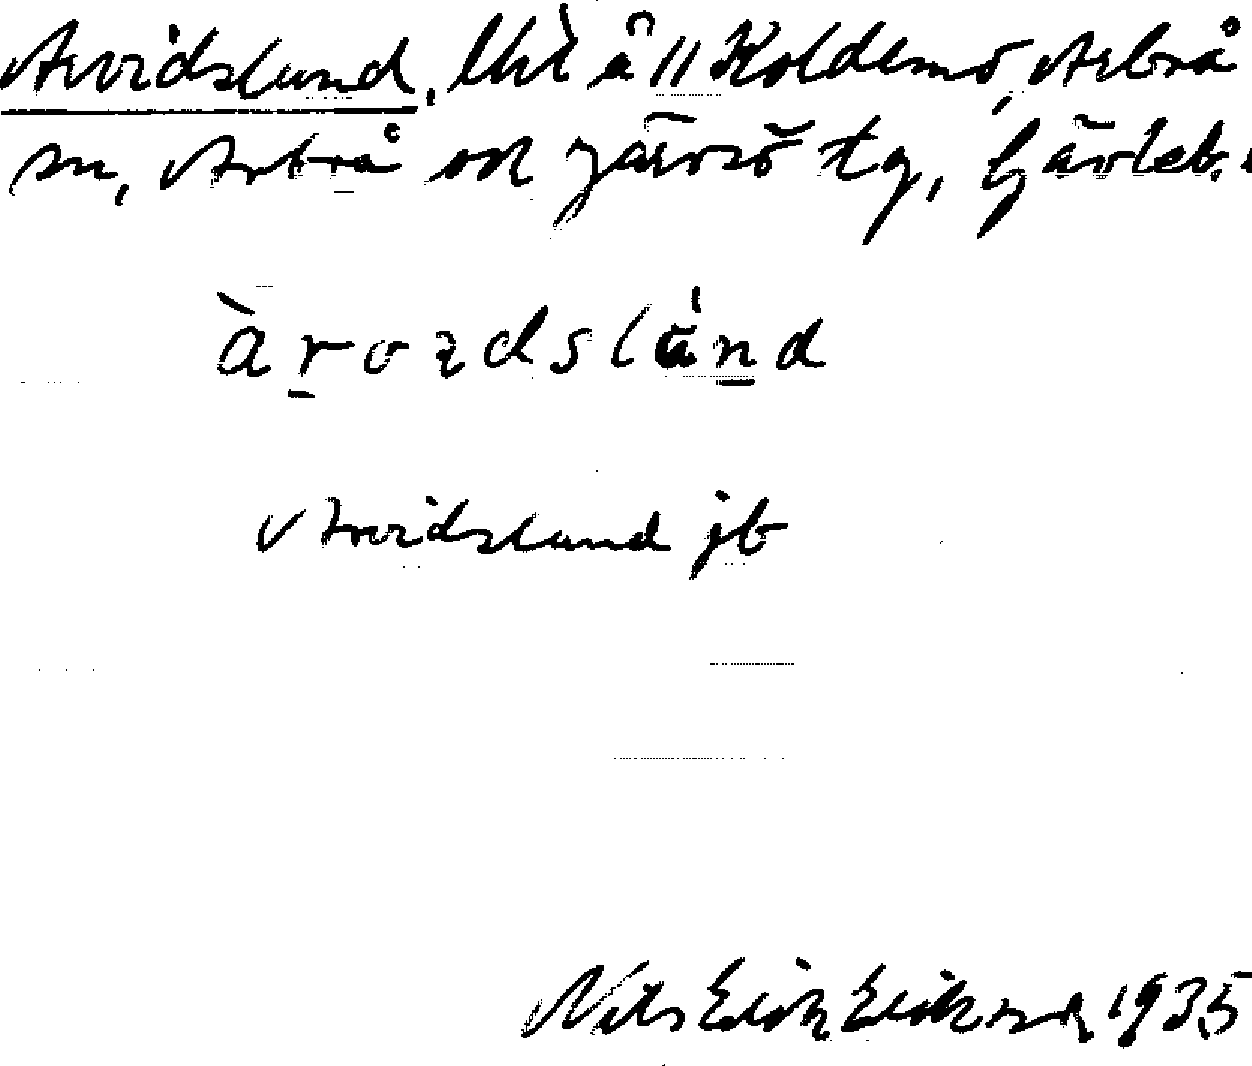 Arvidslund, lht å 11 Koldemo, Arbrå
sn, Arbrå och Järvsö tg, Gävleb. l
àrvɩdslánd
v Arvidslund jb
Nils Erik Erikson 1935